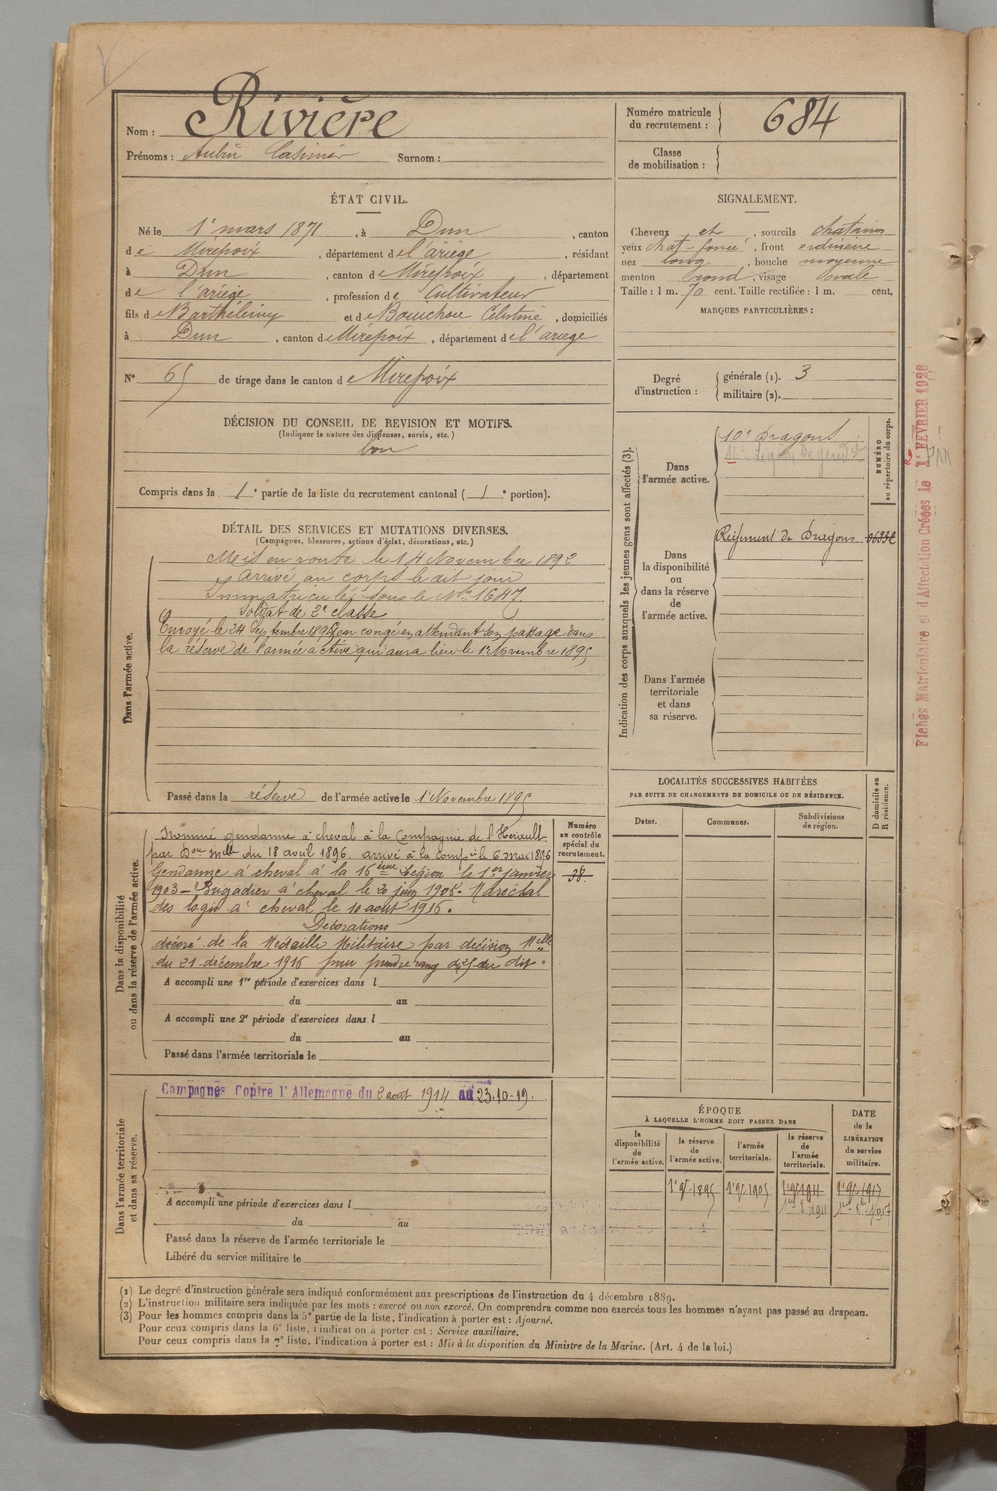 Nom : Rivière
Prénoms : Aubin Casimir Surnom :
Numéro matricule du recrutement : 684
Classe de mobilisation :
ÉTAT CIVIL.
Né le 1er mars 1871, à Dun, canton
de Mirepoix, département de l'ariège, résidant
à Dun, canton de Mirepoix, département
de l'ariège, profession de Cultivateur
fils de Barthélémy et de Bouichou Célestine, domiciliés
à Dun, canton de Mirepoix, département de l'ariège
N° 65 de tirage dans le canton de Mirepoix
SIGNALEMENT.
Cheveux et, sourcils chatains
yeux chat-foncé, front ordinaire
nez long, bouche moyenne
menton rond, visage ovale
Taille : 1 m. 70 cent. Taille rectifiée : 1 m. cent.
MARQUES PARTICULIÈRES :
Degré d'instruction : générale (1). 3
militaire (2).
DÉCISION DU CONSEIL DE REVISION ET MOTIFS.
(Indiquer la nature des dispenses, sursis, etc.)
bon
Compris dans la 1e partie de la liste du recrutement cantonal (1e portion).
DÉTAIL DES SERVICES ET MUTATIONS DIVERSES.
(Campagnes, blessures, actions d'éclat, décorations, etc.)
Dans l'armée active.
Mis en route le 14 Novembre 1892
Arrivé au corps le dit jour
Immatriculé sous le No 1647
Soldat de 2e classe
Envoyé le 24 Septembre 1895 en congé en attendant son passage dans
la réserve de l'armée active qui aura lieu le 1er Novembre 1895
Passé dans la réserve de l'armée active le 1er Novembre 1895
Indication des corps auxquels les jeunes gens sont affectés (3).
Dans l'armée active.
10e Dragons
NUMÉRO au répertoire du corps.
Dans la disponibilité ou dans la réserve de l'armée active.
Régiment de Dragons
Dans l'armée territoriale et dans sa réserve.
Fiches Matriculaire et d'Affectation Créées le 1er FEVRIER 1920
Dans la disponibilité ou dans la réserve de l'armée active.
Nommé gendarme à cheval à la Compagnie de l'Hérault
par Don melle du 18 avril 1896. arrivé à la compie le 6 mai 1896
Gendarme à cheval à la 16ème Légion le 1er janvier
1903 - Brigadier à cheval le 20 juin 1905. Maréchal
des logis à cheval le 10 août 1916.
Décorations
décoré de la Médaille Militaire par décision Melle
du 31 décembre 1916 pour prendre rang du dit.
Numéro au contrôle spécial du recrutement.
38.
A accompli une 1re période d'exercices dans l
du au
A accompli une 2e période d'exercices dans l
du au
Passé dans l'armée territoriale le
LOCALITÉS SUCCESSIVES HABITÉES
PAR SUITE DE CHANGEMENTS DE DOMICILE OU DE RÉSIDENCE.
Dates. Communes. Subdivisions de région. D domicile ou R résidence.
Dans l'armée territoriale et dans sa réserve.
Campagnes Contre l'Allemagne du 2 août 1914 au 23.10.19.
A accompli une période d'exercices dans l
du au
Passé dans la réserve de l'armée territoriale le
Libéré du service militaire le
ÉPOQUE
À LAQUELLE L'HOMME DOIT PASSER DANS
la disponibilité de l'armée active. la réserve de l'armée active. l'armée territoriale. la réserve de l'armée territoriale. DATE de la LIBÉRATION du service militaire.
1er 9bre 1895 1er 9bre 1905 1er 9bre 1911 1er 9bre 1917
(1) Le degré d'instruction générale sera indiqué conformément aux prescriptions de l'instruction du 4 décembre 1889.
(2) L'instruction militaire sera indiquée par les mots : exercé ou non exercé. On comprendra comme non exercés tous les hommes n'ayant pas passé au drapeau.
(3) Pour les hommes compris dans la 5e partie de la liste, l'indication à porter est : Ajourné.
Pour ceux compris dans la 6e liste, l'indication à porter est : Service auxiliaire.
Pour ceux compris dans la 7e liste, l'indication à porter est : Mis à la disposition du Ministre de la Marine. (Art. 4 de la loi.)